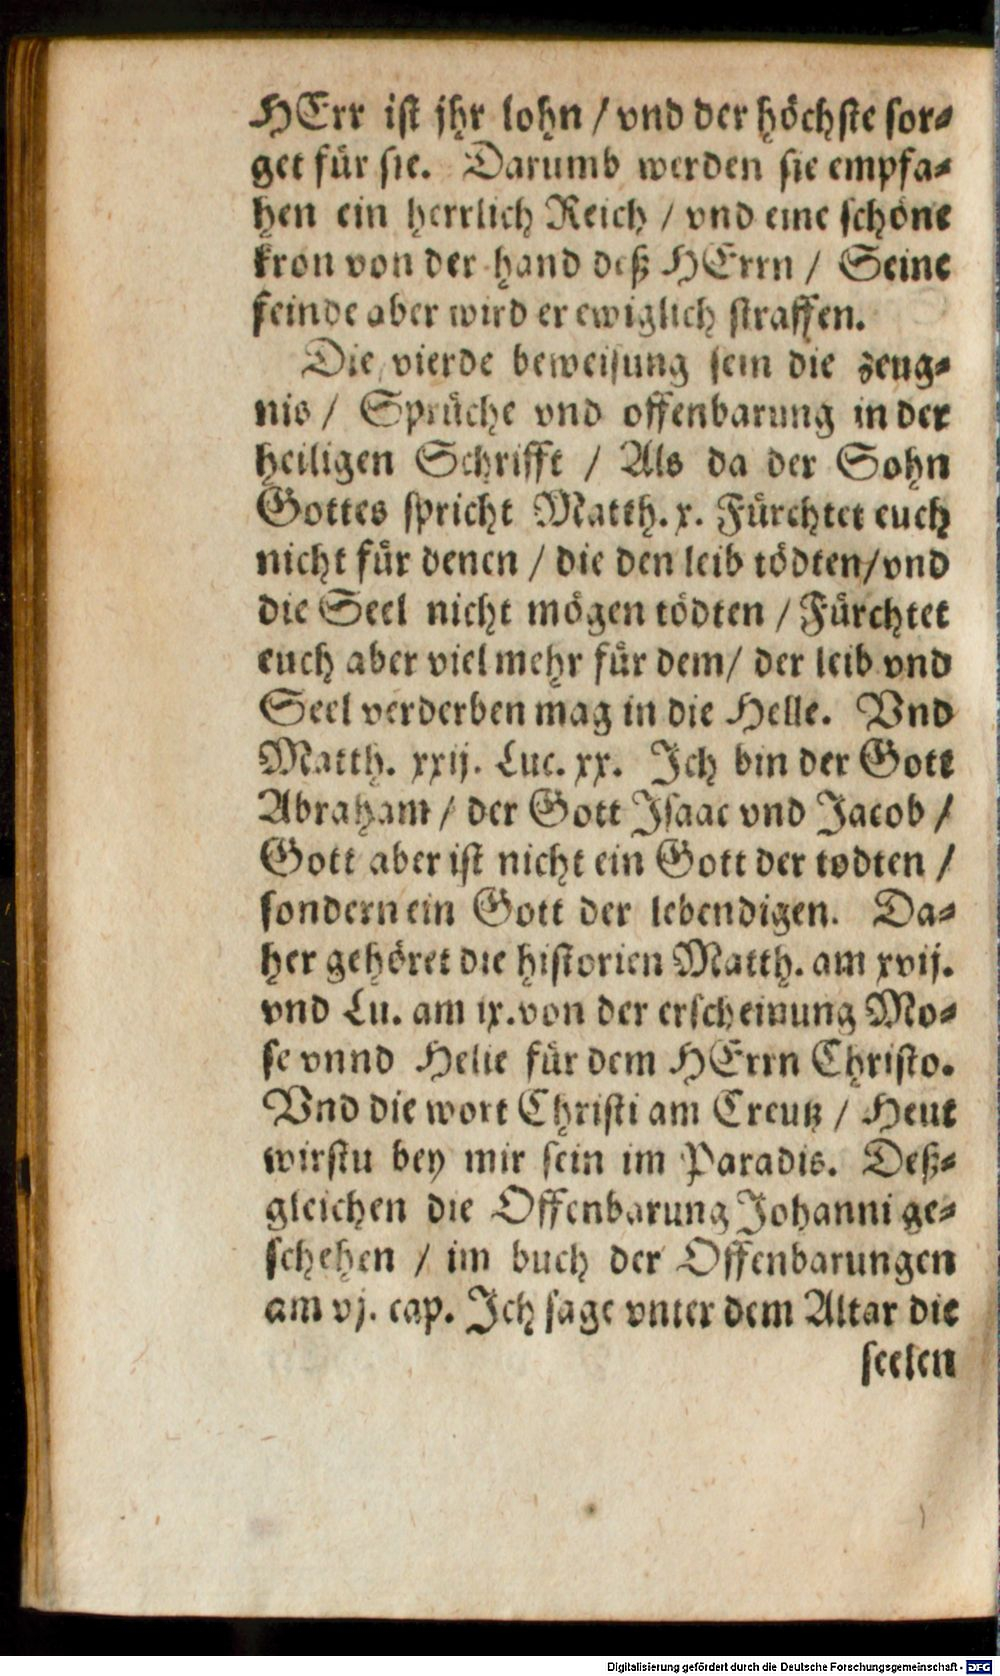 HErr ist jhr lohn / vnd der höchste sor⸗
get für sie. Darumb werden sie empfa⸗
hen ein herrlich Reich / vnd eine schöne
kron von der hand deß HErrn / Seine
feinde aber wird er ewiglich straffen.
Die vierde beweisung sein die zeug⸗
nis / Sprüche vnd offenbarung in der
heiligen Schrifft / Als da der Sohn
Gottes spricht Matth. x. Fürchtet euch
nicht für denen / die den leib tödten/vnd
die Seel nicht mögen tödten / Fürchtet
euch aber viel mehr für dem/ der leib vnd
Seel verderben mag in die Helle. Vnd
Matth. xxij. Luc. xx. Ich bin der Gott
Abraham / der Gott Isaac vnd Jacob /
Gott aber ist nicht ein Gott der todten /
sondern ein Gott der lebendigen. Da⸗
her gehöret die historien Matth. am xvij.
vnd Lu. am ix. von der erscheinung Mo⸗
se vnnd Helie für dem HErrn Christo.
Vnd die wort Christi am Creutz / Heut
wirstu bey mir sein im Paradis. Deß⸗
gleichen die Offenbarung Johanni ge⸗
schehen / im buch der Offenbarungen
am vj. cap. Ich sage vnter dem Altar die
seelen
Digitalisierung gefördert durch die Deutsche Forschungsgemeinschaft - DFG